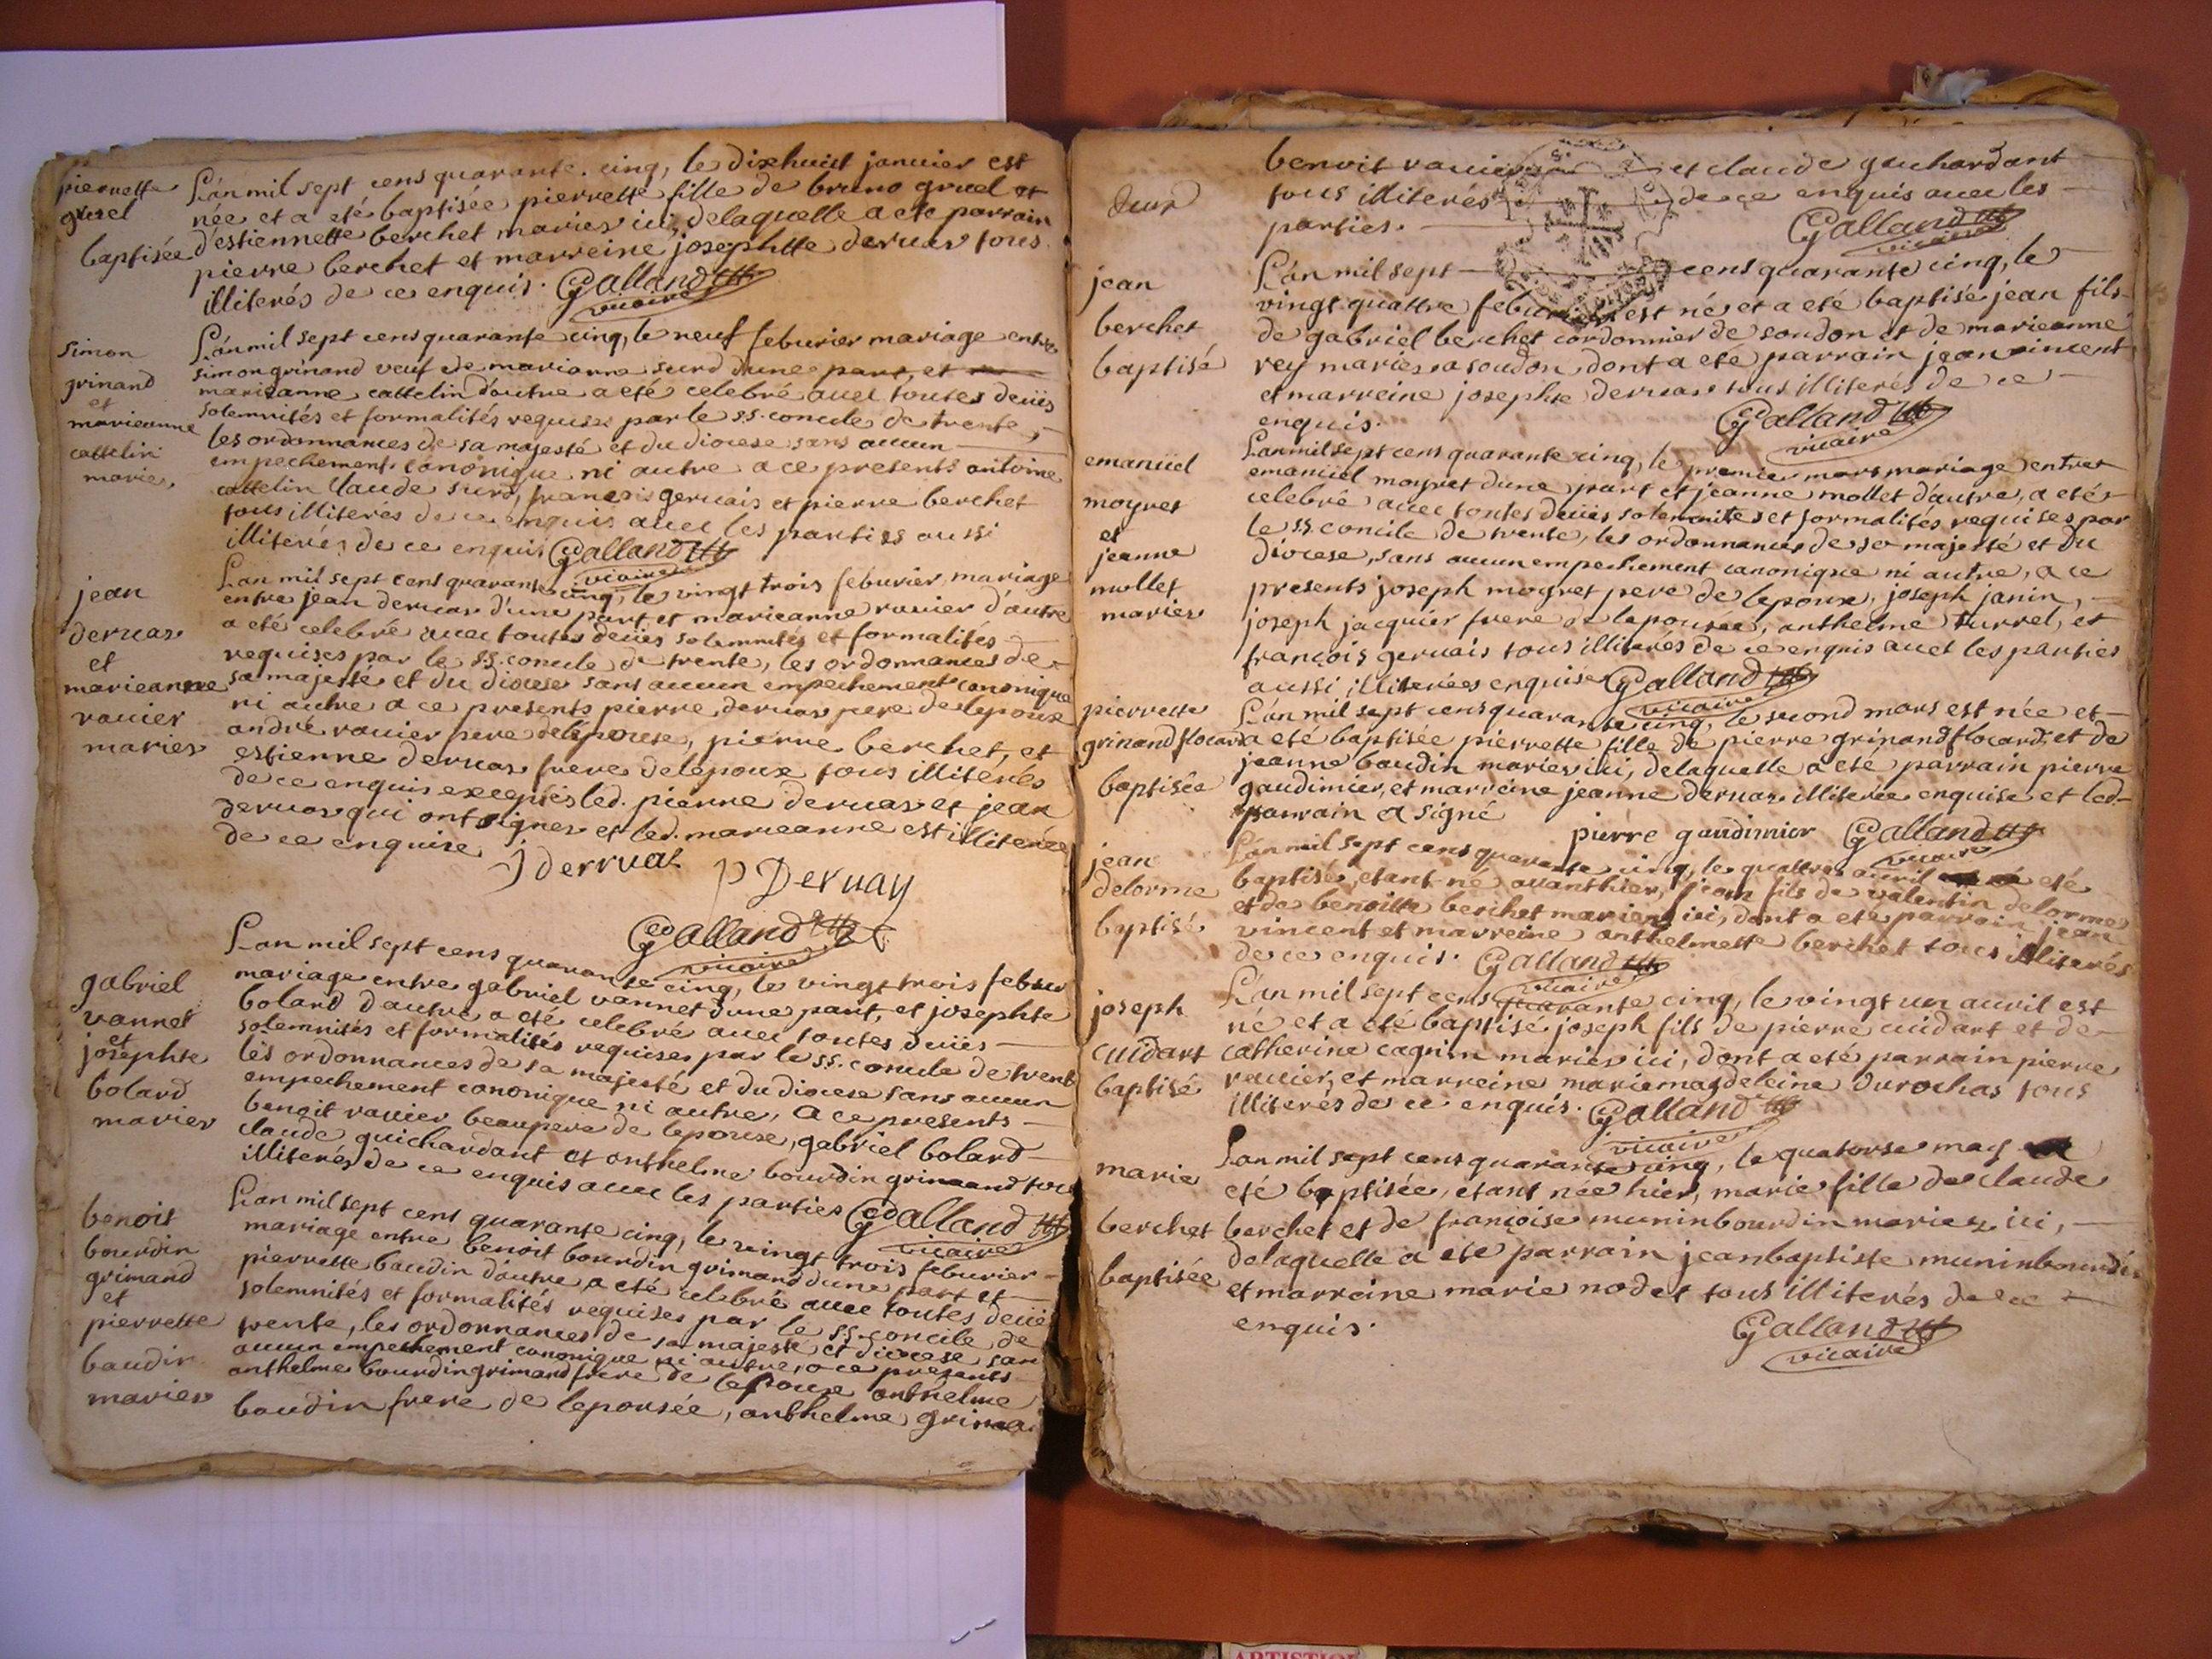 pierrette
gruel
baptisée
L'an mil sept cens quarante cinq, le dixhuist januier est
née et a eté baptisée pierrette fille de bruno gruel et
d'estiennette berchet maries ici, delaquelle a ete parrain
pierre berchet et marreine josephtte deruas tous
illiterés de ce enquis. Galland
vicaire
simon
grinand
et
marieanne
cattelin
maries
L'an mil sept cens quarante cinq, le neuf feburier mariage entre
simon grinand veuf de marianne surd d'une part, et
marieanne cattelin d'autre a eté celebré auec toutes deües
solemnités et formalités requises par le ss. concile de trente,
les ordonnances de sa majesté et du diocese sans aucun
empechement canonique ni autre a ce presents antoine
cattelin claude surd, francois geruais et pierre berchet
tous illiteres de ce enquis auec les parties aussi
illiteres de ce enquis Galland
vicaire
jean
deruas
et
marieanne
rauier
maries
L'an mil sept cens quarante cinq, le vingt trois feburier, mariage
entre jean deruas d'une part, et marieanne rauier d'autre
a eté celebré auec toutes deües solemnités et formalités
requises par le ss. concile de trente, les ordonnances de
sa majesté et du diocese sans aucun empechement canonique
ni autre a ce presents pierre deruas pere de lepoux
andré rauier pere delepouse, pierre berchet, et
estienne deruas frere delepoux tous illiterés
de ce enquis exceptés led. pierre deruas et jean
deruas qui ont signes et led. marieanne est illiterée
de ce enquise
J derruas
P Deruay
Galland
vicaire
gabriel
vannet
et
josephte
bolard
maries
L'an mil sept cens quarante cinq, le vingt trois febur
mariage entre gabriel vannet d'une part, et josephte
bolard d'autre a eté celebré auec toutes deües
solemnités et formalités requises par le ss. concile de trent
les ordonnances de sa majesté et du diocese sans aucun
empechement canonique ni autre, a ce presents
benoit rauier beaupere de lepouse, gabriel bolard
claude guichardant et anthelme bourdin grimaand tous
illiterés de ce enquis auec les parties Galland
vicaire
benoit
bourdin
grimand
et
pierrette
baudin
maries
L'an mil sept cent quarante cinq, le vingt trois feburier
mariage entre benoit bourdin grimand d'une part et
pierrette baudin d'autre a eté celebré auec toutes deües
solemnités et formalités requises par le ss. concile de
trente, les ordonnances de sa majesté et diocese san
aucun empechement canonique ni autre, a ce presants
anthelme bourdingrimand frere de lepoux anthelme
baudin frere de lepousée, anthelme grima
deux
benoit rauier et claude guichardant
tous illiterés de ce enquis auec les
parties.
Galland
vicaire
jean
berchet
baptisé
L'an mil sept cens quarante cinq, le
vingt quattre feburier est né et a eté baptisé jean fils
de gabriel berchet cordonnier de soudon et de marieanne
rey maries a soudon, dont a eté parrain jean vincent
et marreine josephte deruas tous illiterés de ce
enquis.
Galland
vicaire
emanüel
moyret
et
jeanne
mollet
maries
L'an mil sept cens quarante cinq, le premier mars mariage entre
emanüel moyret d'une part et jeanne mollet d'autre, a eté
celebré auec toutes deües solemnités et formalités requises par
le ss. concile de trente, les ordonnances de sa majesté et du
diocese, sans aucun empechement canonique ni autre, a ce
presents joseph moyret pere de lepoux, joseph janin,
joseph jacquier frere de lepousée, anthelme turrel, et
françois geruais tous illiterés de ce enquis auec les parties
aussi illiterées enquises Galland
vicaire
pierrette
grinand flocard
baptisée
L'an mil sept cens quarante cinq, le second mars est née et
a eté baptisée pierrette fille de pierre grinand flocard, et de
jeanne baudin maries ici, delaquelle a eté parrain pierre
gaudimier, et marreine jeanne deruas illiterée enquise et led
parrain a signé
pierre gaudimier Galland
vicaire
jean
delorme
baptisé
L'an mil sept cens quarante cinq, le quattre auril a eté
baptisé, etant né auanthier, jean fils de valentin delorme
et de benoitte berchet maries ici, dont a eté parrain jean
vincent et marreine anthelmette berchet tous illiterés
de ce enquis. Galland
vicaire
joseph
cuidart
baptisé
L'an mil sept cens quarante cinq, le vingt un auril est
né et a eté baptisé joseph fils de pierre cuidart et de
catherine cagnin maries ici, dont a eté parrain pierre
rauier, et marreine mariemagdeleine durochas tous
illiterés de ce enquis. Galland
vicaire
marie
berchet
baptisée
L'an mil sept cens quarante cinq, le quatorse may
eté baptisée, etant née hier, marie fille de claude
berchet et de françoise muninbourdin maries ici,
delaquelle a eté parrain jeanbaptiste muninbourdin
et marreine marie nodet tous illiterés de ce
enquis.
Galland
vicaire